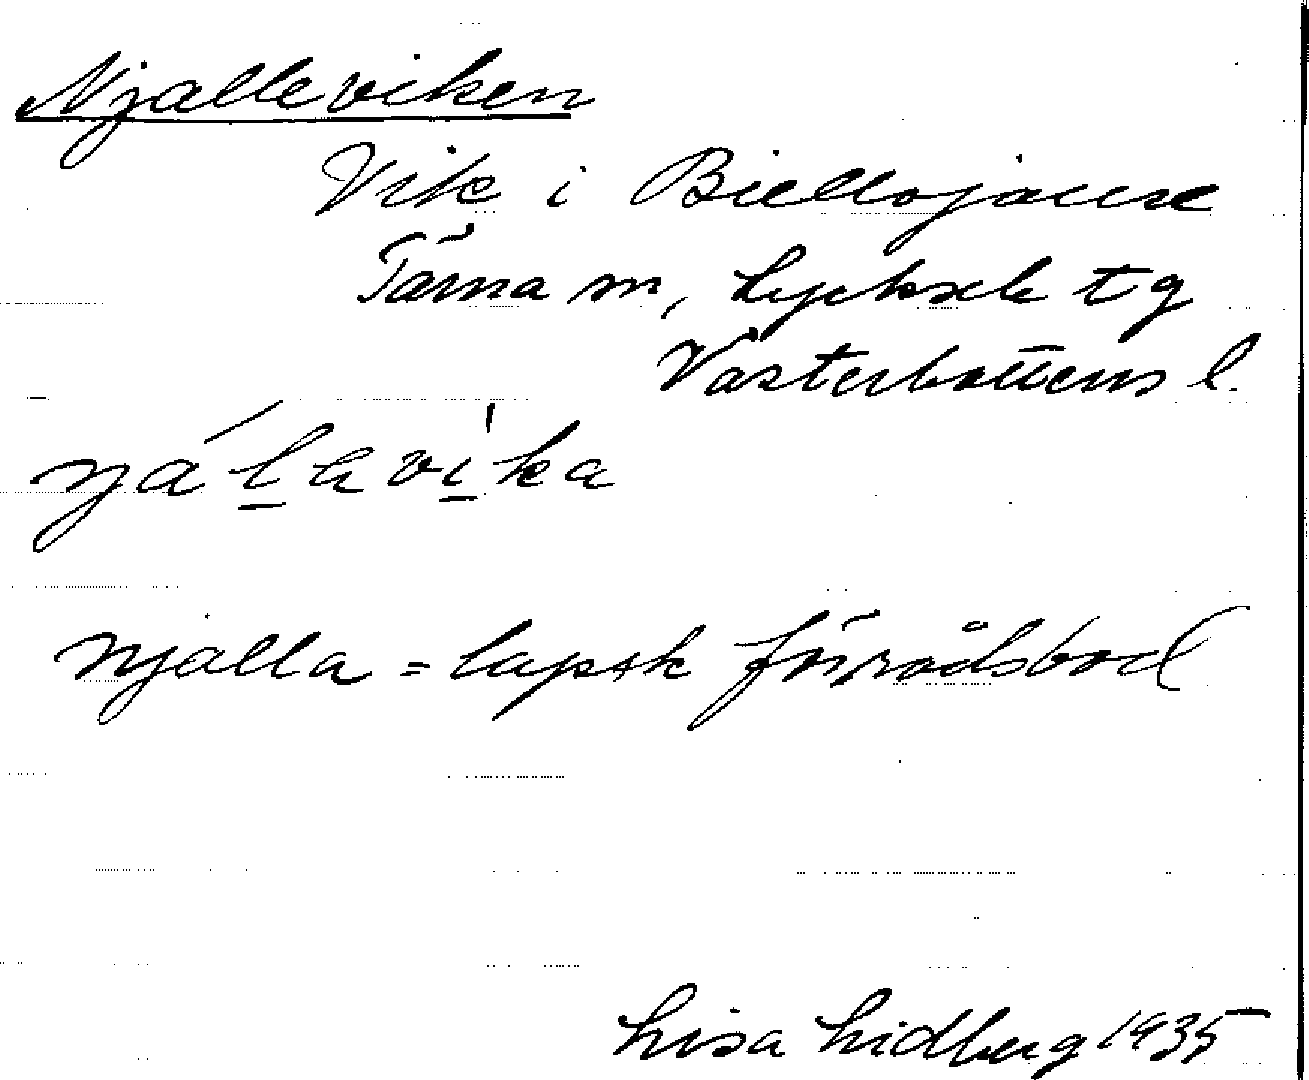 Njalleviken
Vik i Biellojaure
Tärna sn, Lycksele tg
Västerbottens l.
njálavi̱ka
njalla = lapsk förrådsbod
Lisa Lidberg 1935